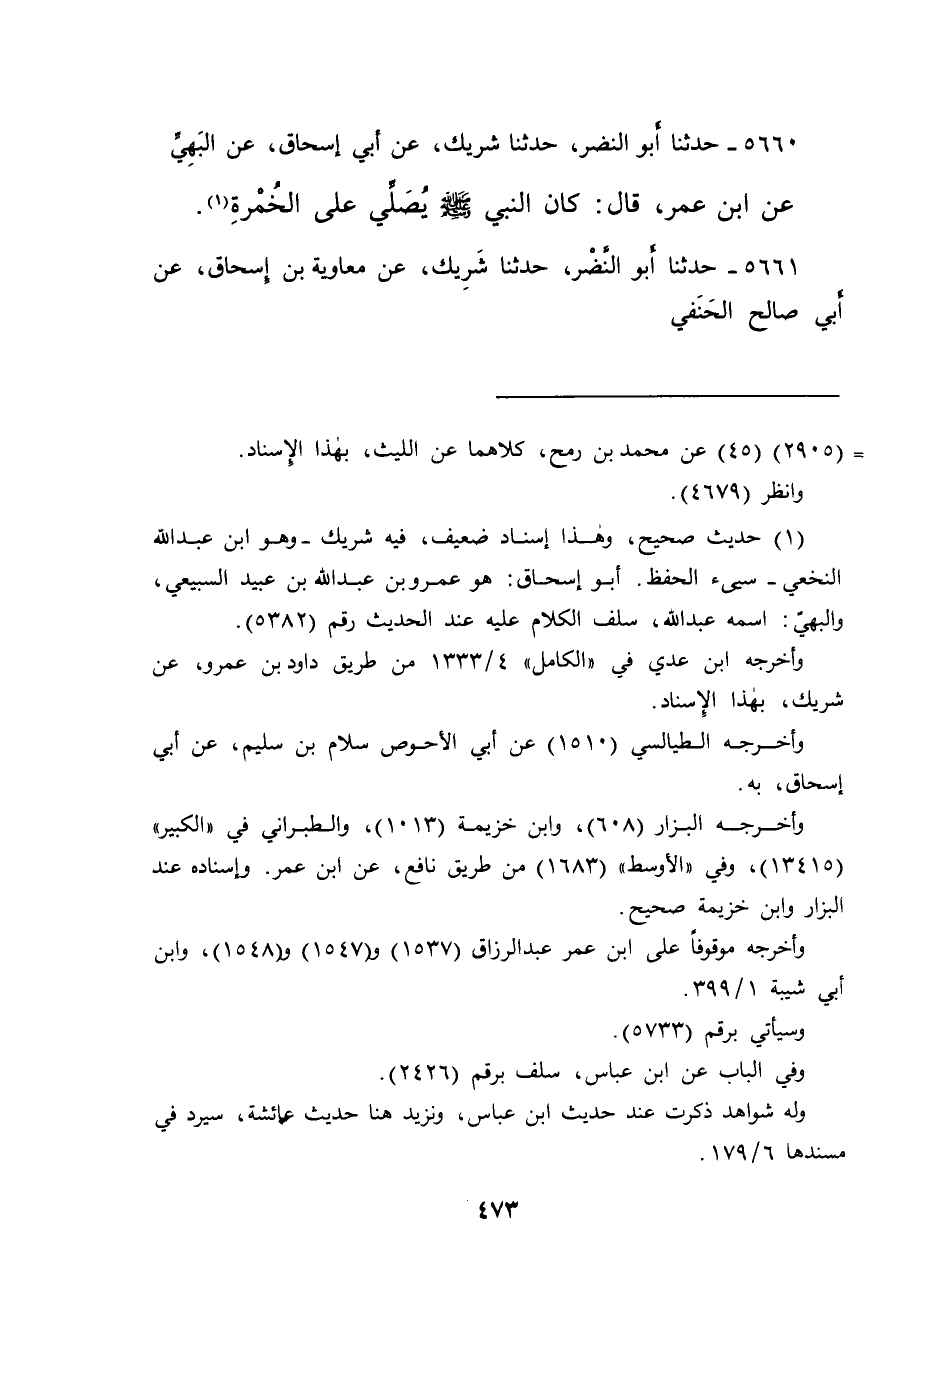 ٥٦٦٠ ـ حدثنا أَبو النضر، حدثنا شريك، عن أبي إسحاق، عن البَهِيِّ
عن ابن عمر، قال: كان النبي ﷺ يُصَلِّي على الخُمْرةِ(١).
٥٦٦١ ـ حدثنا أَبو النَّضْر، حدثنا شَرِيك، عن معاوية بن إِسحاق، عن
أَبي صالح الحَنَفي
= (٢٩٠٥) (٤٥) عن محمد بن رمح، كلاهما عن الليث، بهٰذا الإِسناد.
وانظر (٤٦٧٩).
(١) حديث صحيح، وهٰذا إسناد ضعيف، فيه شريك ـ وهو ابن عبدالله
النخعي ـ سيىء الحفظ. أبو إسحاق: هو عمرو بن عبدالله بن عبيد السبيعي،
والبهيّ: اسمه عبدالله، سلف الكلام عليه عند الحديث رقم (٥٣٨٢).
وأخرجه ابن عدي في «الكامل» ١٣٣٣/٤ من طريق داود بن عمرو، عن
شريك، بهٰذا الإِسناد.
وأخرجه الطيالسي (١٥١٠) عن أبي الأحوص سلام بن سليم، عن أبي
إسحاق، به.
وأخرجه البزار (٦٠٨)، وابن خزيمة (١٠١٣)، والطبراني في «الكبير»
(١٣٤١٥)، وفي «الأوسط» (١٦٨٣) من طريق نافع، عن ابن عمر. وإسناده عند
البزار وابن خزيمة صحيح.
وأخرجه موقوفاً على ابن عمر عبدالرزاق (١٥٣٧) و(١٥٤٧) و(١٥٤٨)، وابن
أبي شيبة ٣٩٩/١.
وسيأتي برقم (٥٧٣٣).
وفي الباب عن ابن عباس، سلف برقم (٢٤٢٦).
وله شواهد ذكرت عند حديث ابن عباس، ونزيد هنا حديث عائشة، سيرد في
مسندها ١٧٩/٦.
٤٧٣